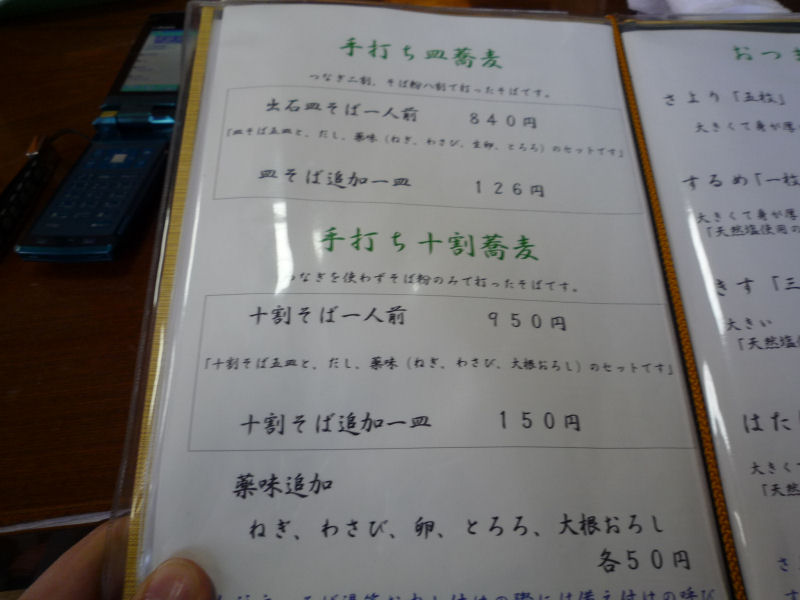 手打ち皿蕎麦
つなぎ二割、そば粉八割で打ったそばです。
出石皿そば一人前 840円
「皿そば五皿と、だし、薬味（ねぎ、わさび、生卵、とろろ）のセットです」
皿そば追加一皿 126円
手打ち十割蕎麦
つなぎを使わずそば粉のみで打ったそばです。
十割そば一人前 950円
「十割そば五皿と、だし、薬味（ねぎ、わさび、大根おろし）のセットです」
十割そば追加一皿 150円
薬味追加
ねぎ、わさび、卵、とろろ、大根おろし
各50円
おつ
さより「五枚」
大きくて身が厚
するめ「一枚
大きくて身が厚
「天然塩使用の
きす「三
大きい
「天然塩
はた
大きく
「天然